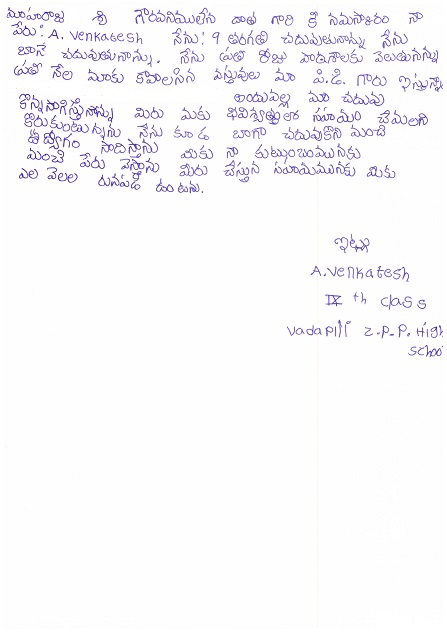 మహరాజ శ్రీ గౌరవనిములేన దాత గారి కి నమస్కారం నా
పేరు: A. Venkatesh నేను! 9 తరగతి చదువుతునాన్ను నేను
బాగే చదువుతునాన్ను. నేను ప్రతి రోజు పాఠశాలకు వెలుతునన్ను
ప్రతి నేల మాకు కావాలసిన వస్తువులు మా పి.డి. గారు ఇస్తున్నా
అందువల్ల మా చదువు
మిరు మకు సహయం చేములని
కోరుకుంటున్నను నేను కూడ బాగా చదువుకొని మంచి
ఉద్యోగం సాదిస్తాను మికు నా కుటుంబంమునకు
మంచి పేరు తెస్తాను మిరు చేస్తున సహయమునకు మికు
ఎల వెలల రునపడి ఉంటను.
ఇట్లు
A.Venkatesh
IX th class
Vadapilli Z.P.P. High
School